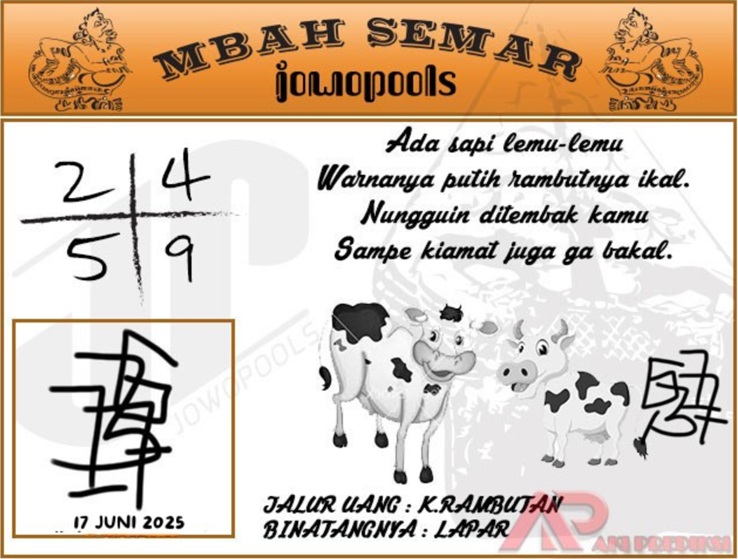 MBAH SEMAR
jowopools
2 4
5 9
Ada sapi lemu-lemu
Warnanya putih rambutnya ikal.
Nungguin ditembak kamu
Sampe kiamat juga ga bakal.
JOWOPOOLS
17 JUNI 2025
JALUR UANG : K.RAMBUTAN
BINATANGNYA : LAPAR
AP